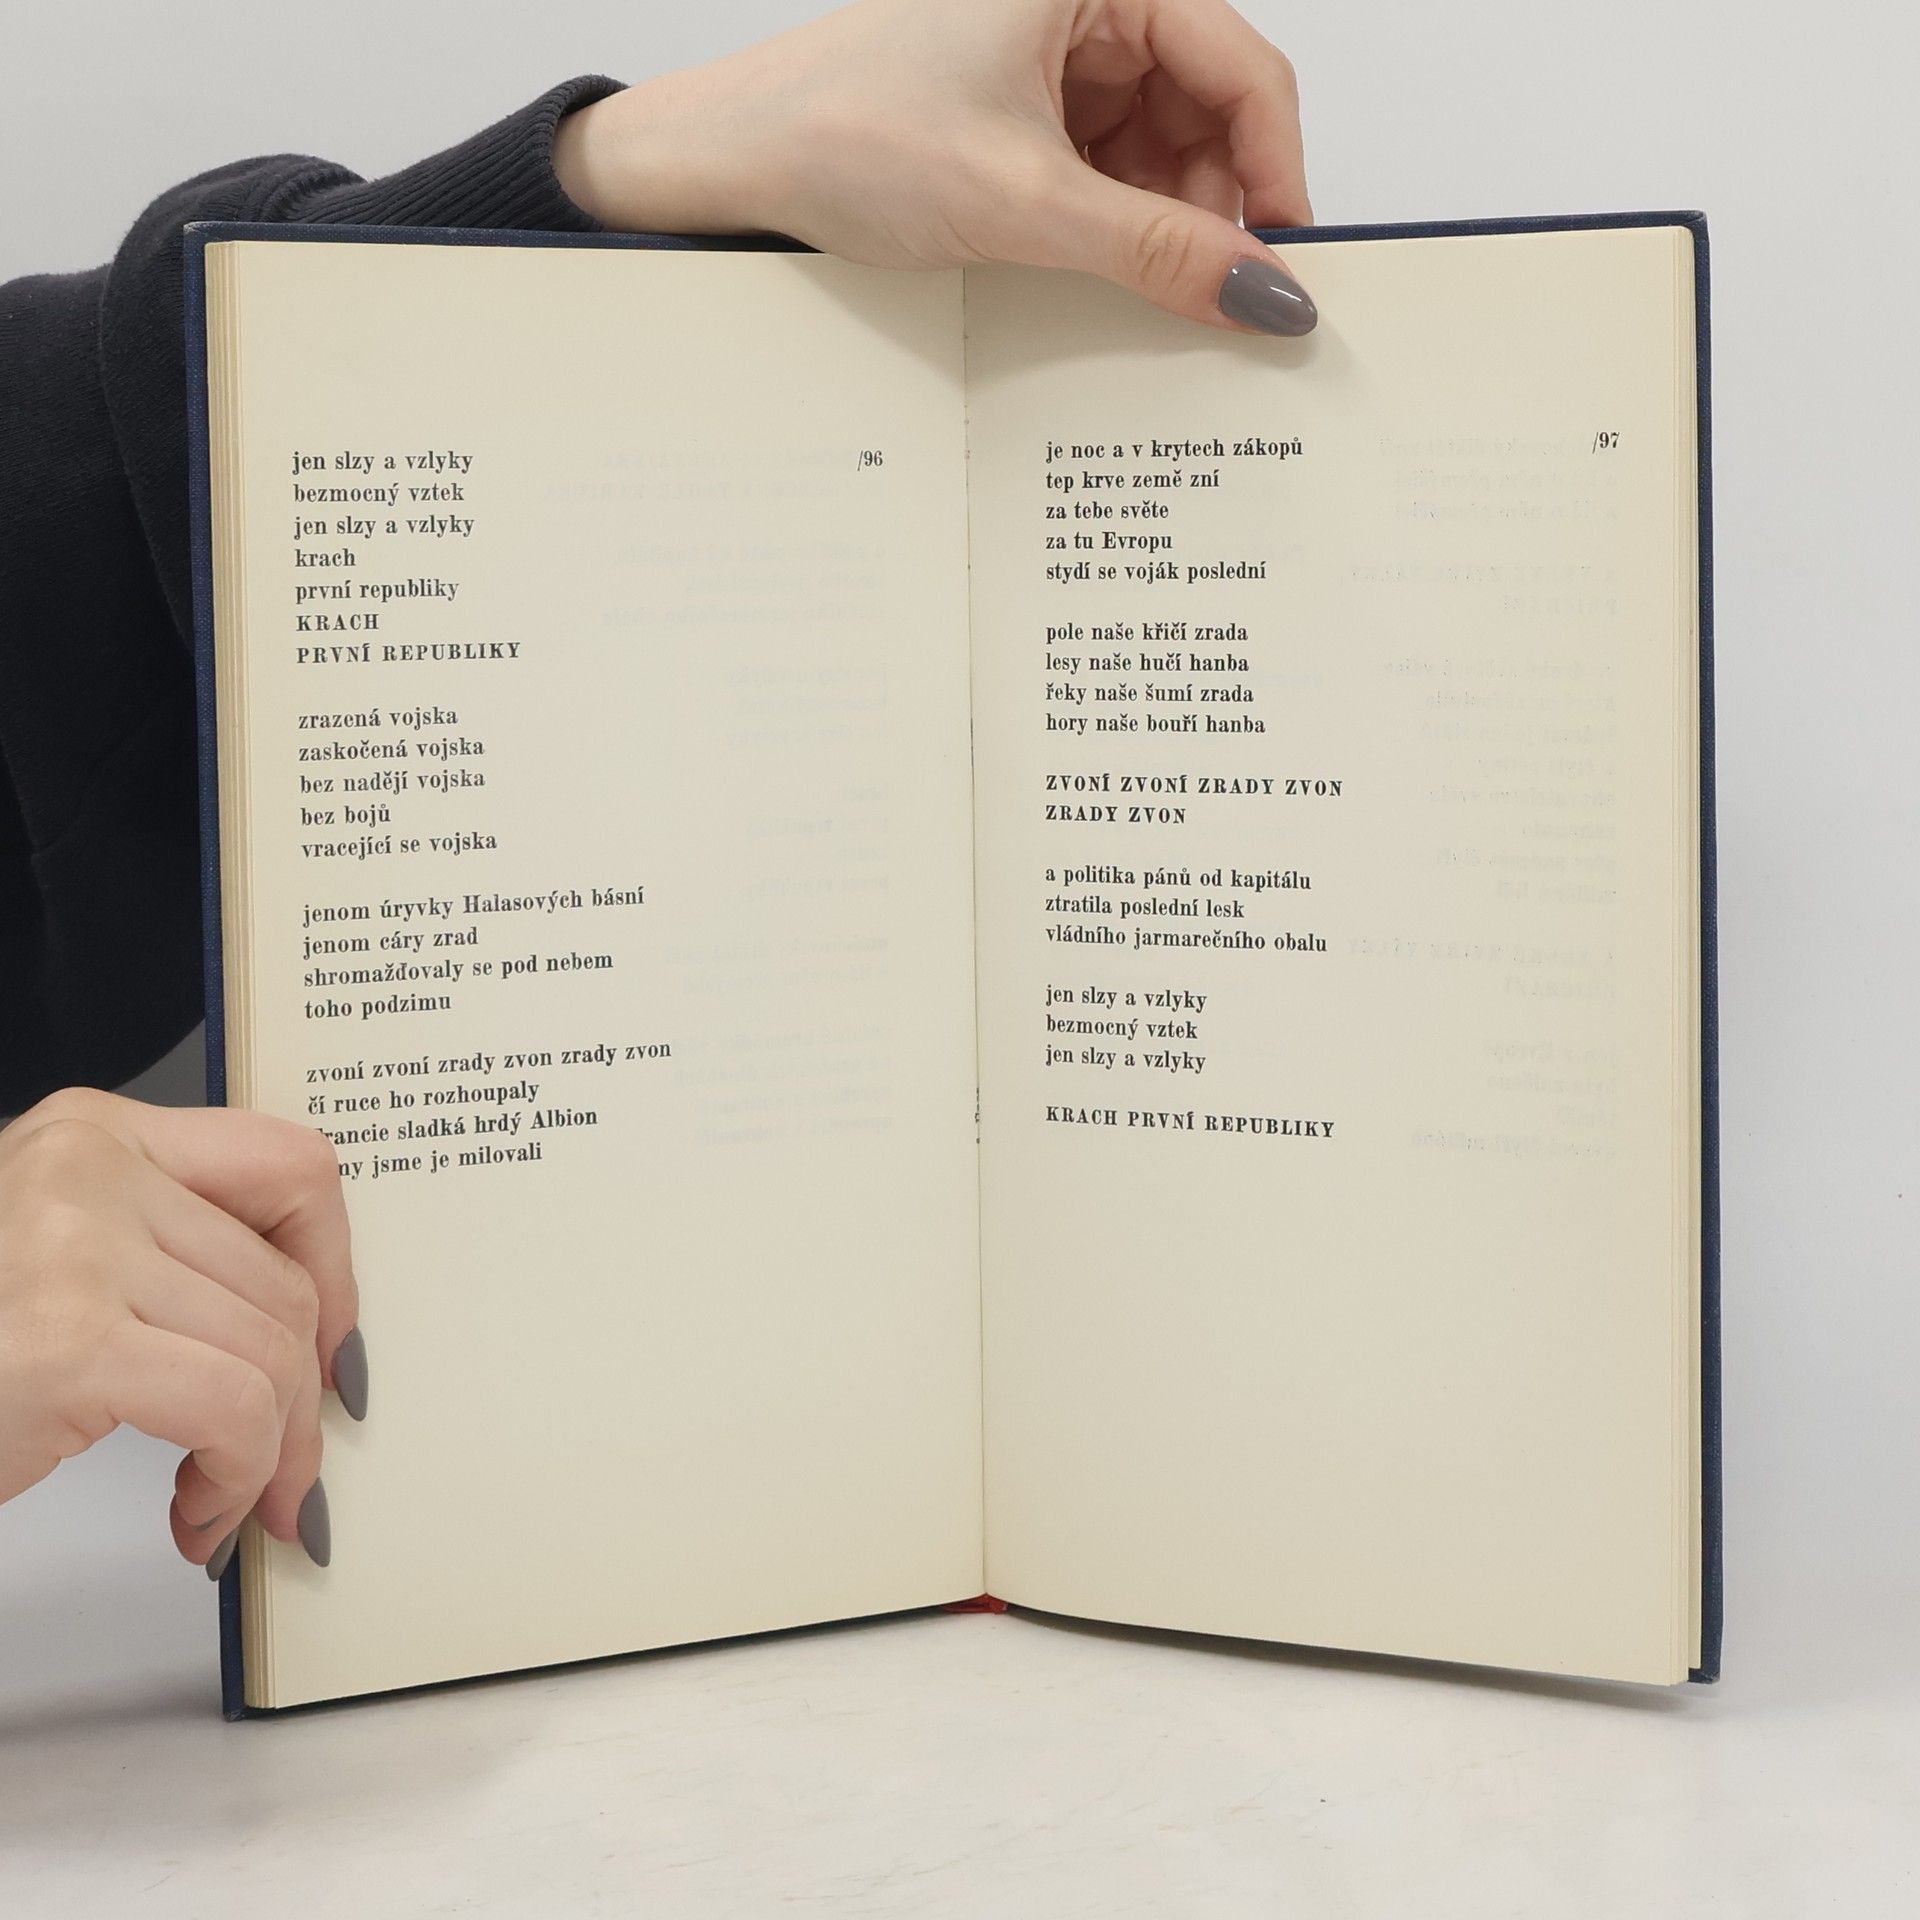 jen slzy a vzlyky
/96
bezmocný vztek
jen slzy a vzlyky
krach
první republiky
KRACH
PRVNÍ REPUBLIKY
zrazená vojska
zaskočená vojska
bez nadějí vojska
bez bojů
vracející se vojska
jenom úryvky Halasových básní
jenom cáry zrad
shromažďovaly se pod nebem
toho podzimu
zvoní zvoní zrady zvon zrady zvon
čí ruce ho rozhoupaly
sladká hrdý Albion
jsme je milovali
je noc a v krytech zákopů
/97
tep krve země zní
za tebe světe
za tu Evropu
stydí se voják poslední
pole naše křičí zrada
lesy naše hučí hanba
řeky naše šumí zrada
hory naše bouří hanba
ZVONÍ ZVONÍ ZRADY ZVON
ZRADY ZVON
a politika pánů od kapitálu
ztratila poslední lesk
vládního jarmarečního obalu
jen slzy a vzlyky
bezmocný vztek
jen slzy a vzlyky
KRACH PRVNÍ REPUBLIKY